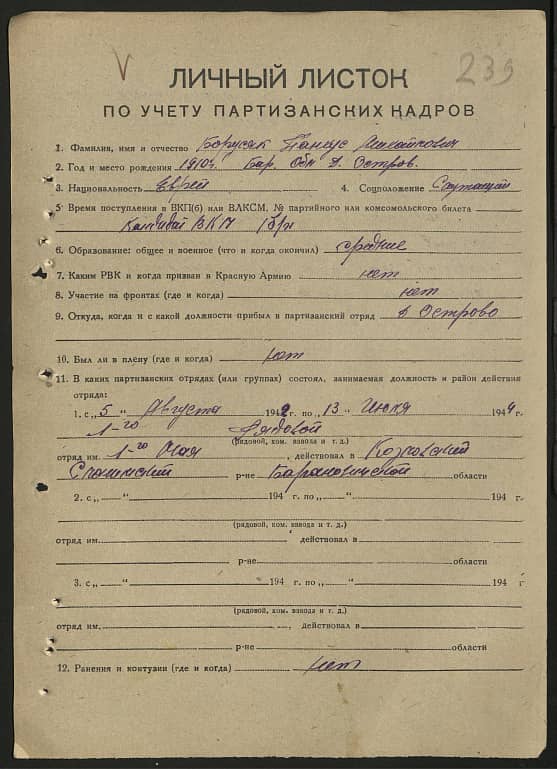 V
239
ЛИЧНЫЙ ЛИСТОК
ПО УЧЕТУ ПАРТИЗАНСКИХ КАДРОВ
1. Фамилия, имя и отчество Борусяк
2. Год и место рождения 1910 г. Бар. Обл д. Остров.
3. Национальность еврей 4. Соцположение Служащий
5. Время поступления в ВКП(б) или ВЛКСМ, № партийного или комсомольского билета
6. Образование: общее и военное (что и когда окончил) среднее
7. Каким РВК и когда призван в Красную Армию нет
8. Участие на фронтах (где и когда) нет
9. Откуда, когда и с какой должности прибыл в партизанский отряд д Острово
10. Был ли в плену (где и когда) нет
11. В каких партизанских отрядах (или группах) состоял, занимаемая должность и район действия
отряда:
1. с „5“ Августа 1942 г. по „13“ Июля 1944 г.
1-го Рядовой
(рядовой, ком. взвода и т. д.)
отряд им. 1-го Мая, действовал в Козловский
Слонимский р-не Барановичской области
2. с „ “ 194 г. по „ “ 194 г.
(рядовой, ком. взвода и т. д.)
отряд им. , действовал в
р-не области
3. с „ “ 194 г. по „ “ 194 г
(рядовой, ком. взвода и т. д.)
отряд им. , действовал в
р-не области
12. Ранения и контузии (где и когда) нет